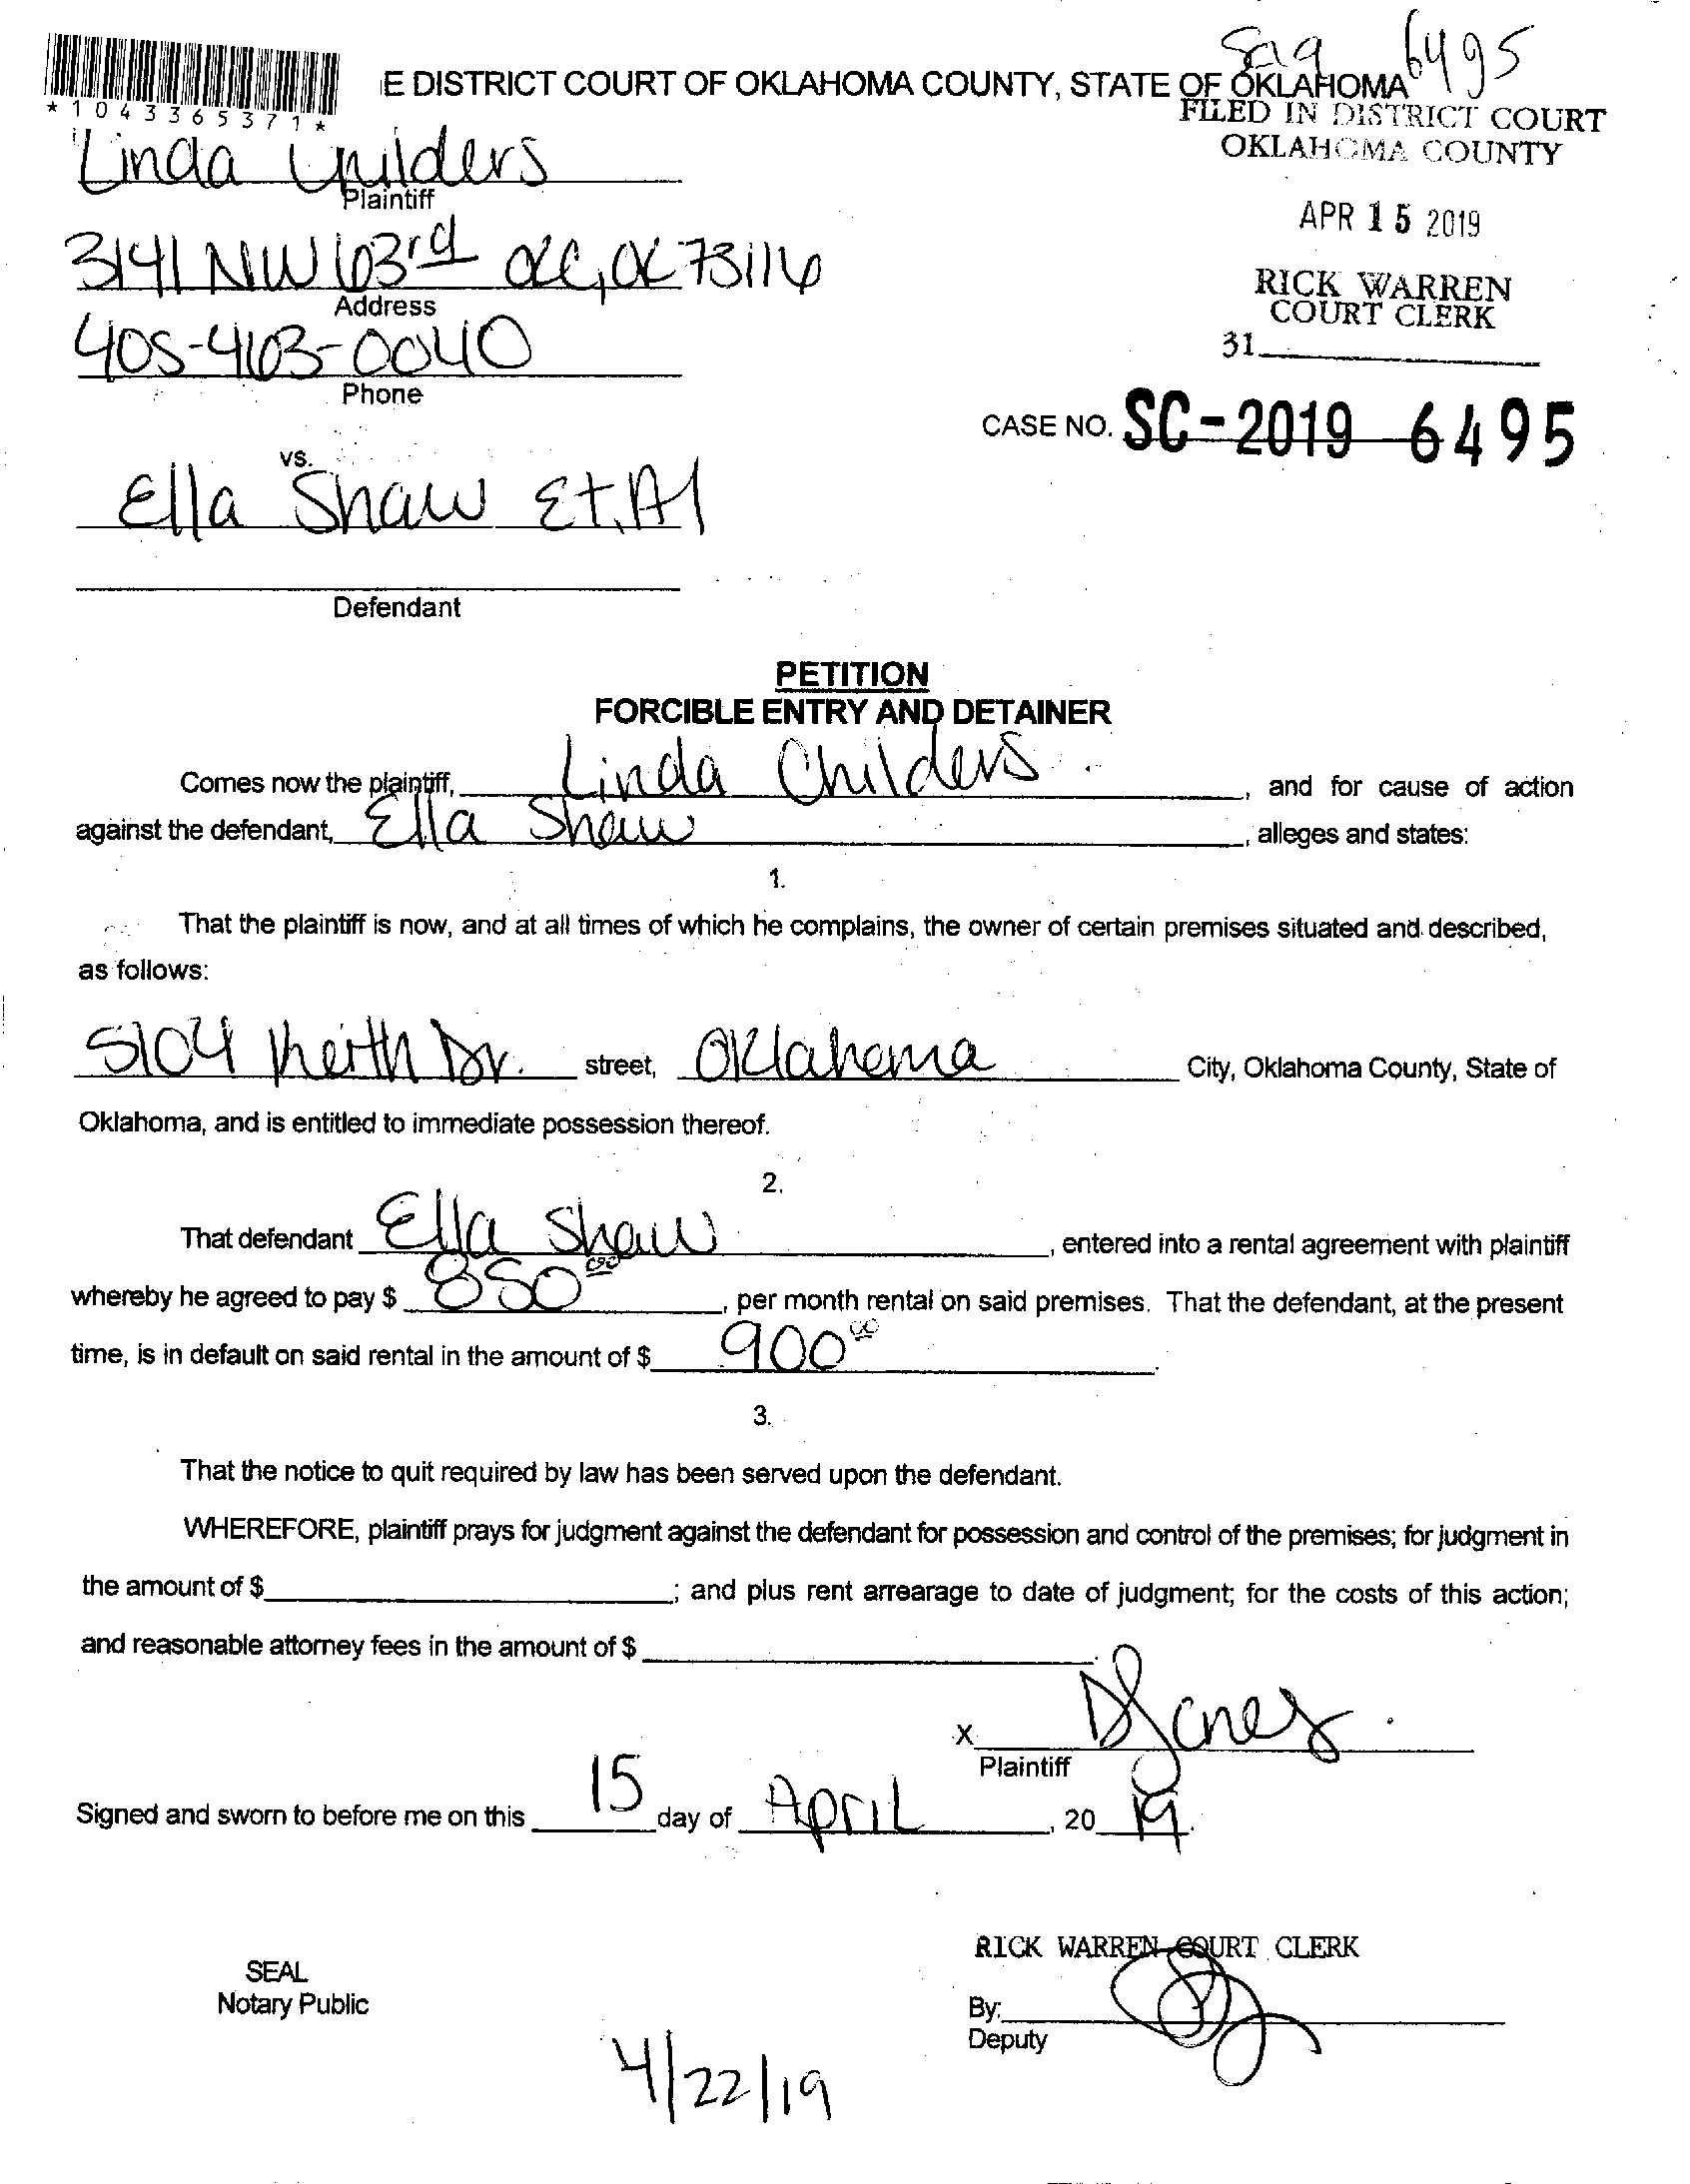 6495
E DISTRICT COURT OF OKLAHOMA COUNTY, STATE OF OKLAHOMA
*1043365371*
FILED IN DISTRICT COURT
OKLAHOMA COUNTY
Linda Childers
Plaintiff
APR 15 2019
3141 NW 63rd OKC, OK 73116
Address
RICK WARREN
COURT CLERK
405-463-0040
Phone
31
CASE NO. SC-2019 6495
vs.
Ella Shaw Et, Al
Defendant
PETITION
FORCIBLE ENTRY AND DETAINER
Comes now the plaintiff, Linda Childers, and for cause of action
against the defendant, Ella Shaw, alleges and states:
1.
That the plaintiff is now, and at all times of which he complains, the owner of certain premises situated and described,
as follows:
5104 Keith Dr. street, Oklahoma City, Oklahoma County, State of
Oklahoma, and is entitled to immediate possession thereof.
2.
That defendant Ella Shaw, entered into a rental agreement with plaintiff
whereby he agreed to pay $ 850 00, per month rental on said premises. That the defendant, at the present
time, is in default on said rental in the amount of $ 900 00.
3.
That the notice to quit required by law has been served upon the defendant.
WHEREFORE, plaintiff prays for judgment against the defendant for possession and control of the premises; for judgment in
the amount of $ ; and plus rent arrearage to date of judgment; for the costs of this action;
and reasonable attorney fees in the amount of $ .
X
Plaintiff
Signed and sworn to before me on this 15 day of April, 20 19.
RICK WARREN COURT CLERK
SEAL
Notary Public
By:
Deputy
4/22/19